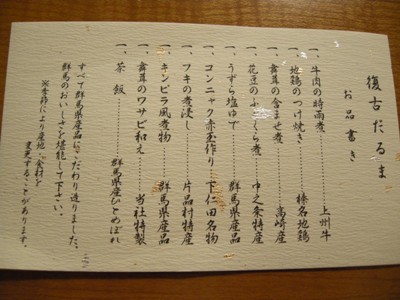 復古だるま
お品書き
一、牛肉の時雨煮………上州牛
一、地鶏のつけ焼き………榛名地鶏
一、舞茸の含ませ煮………高崎産
一、花豆のふっくら煮………中之条特産
一、うずら塩ゆで………群馬県産品
一、コンニャク赤玉作り………下仁田名物
一、フキの煮浸し………片品村特産
一、キンピラ風煮物………群馬県産品
一、舞茸のワサビ和え………当社特製
一、茶飯………群馬県産ひとめぼれ
すべて群馬県産品にこだわり造りました。
群馬のおいしさを堪能して下さい。
※季節により産地、食材を
変更することがあります。